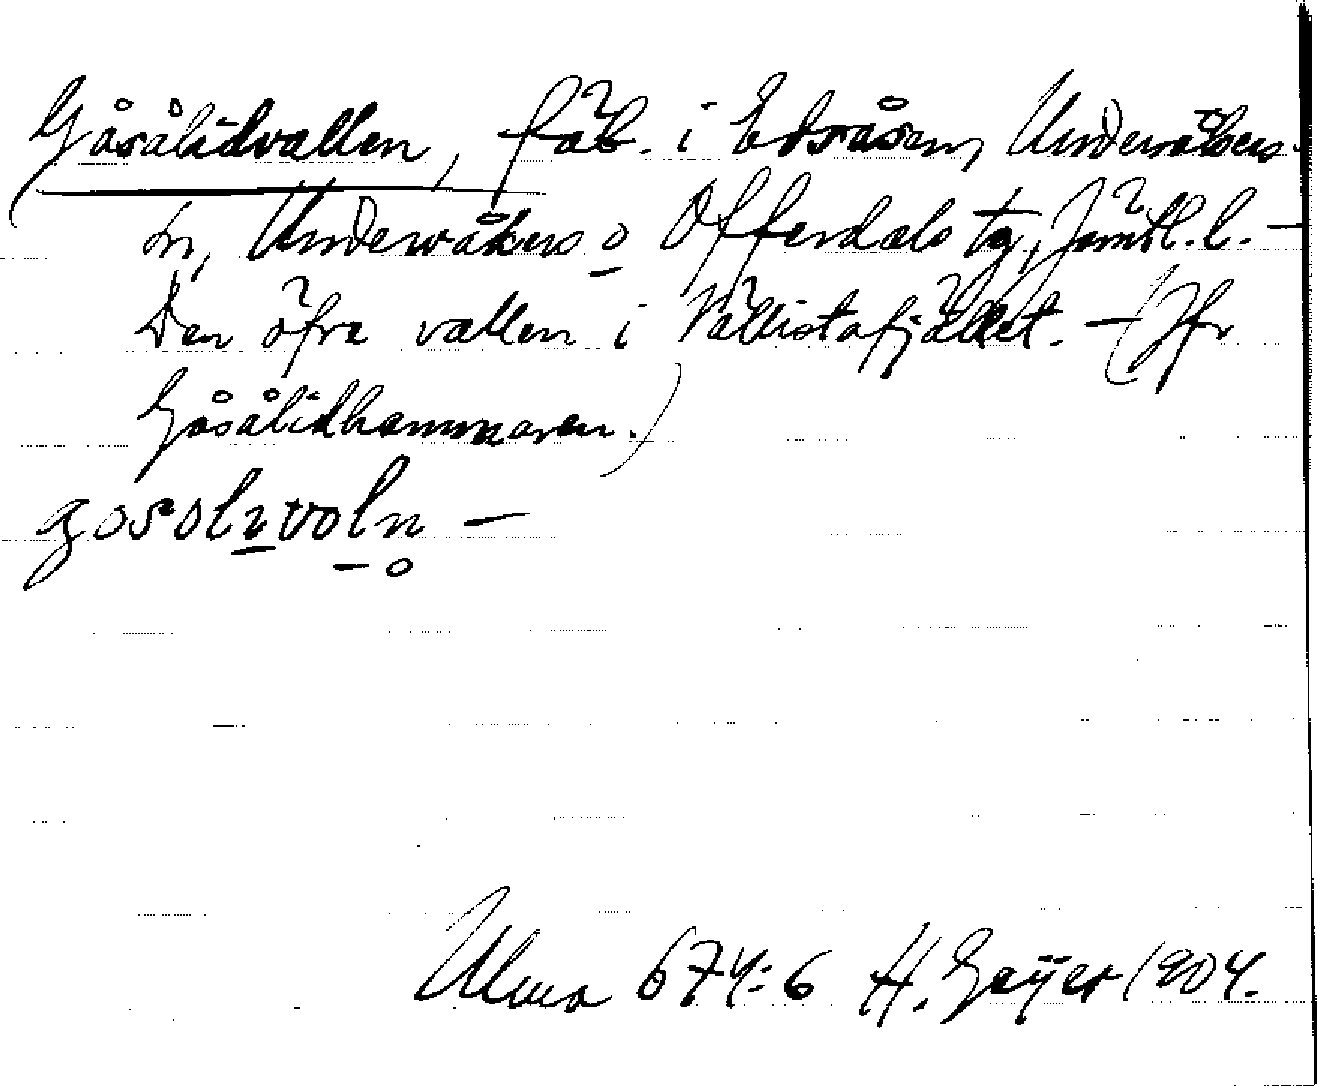 Gåsålidvallen, fäb. i Edsåsen, Undersåkers
sn, Undersåkers o Offerdals tg, Jämtl. l. –
Den öfre vallen i Vällistafjället. – (Jfr
Gåsålidhammaren.)
gosolıvoln –
Ulma 674:6 H. Geijer 1904.